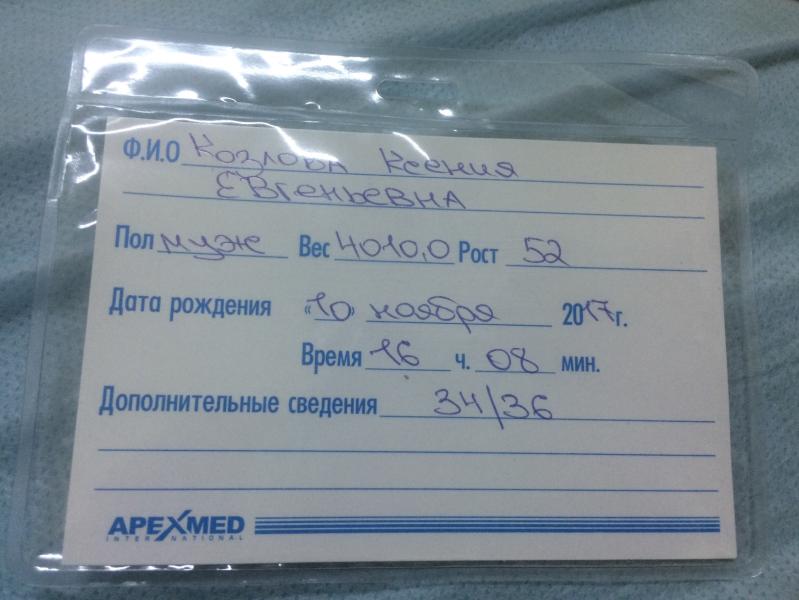 Ф.И.О Козлова Ксения
Евгеньевна
Пол муж Вес 4010,0 Рост 52
Дата рождения «10» ноября 2017г.
Время 16 ч. 08 мин.
Дополнительные сведения 34/36
APEXMED
INTERNATIONAL